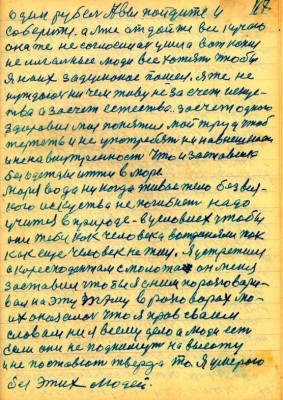 один рубель А вы пойдите и 67
соберите, а мне отдайте все ручено
она те не согласился ушла вот какие
не мои люди все хотят чтобы
Я на их задуманное пошел. Я же не
нуждаюсь ни чем живу не за счет искус-
тва а за счет естества. за счет одного
здоровия мое понятие мой труд чтоб
терпеть и не употреблять ни на внешность
и ни на внутренность что и заставила
без одежды итти в море
моря вода никогда живое тело без вся-
кого искуства не погибнет надо
учится в природе в условиях чтобы
они тебя как человека встретили так
как еще человек не жил. Я встретился
с корреспондентам с молотам он меня
заставил чтобы я с ним поразговари-
вал на эту тему в разговорах мо-
их оказалось что я прав своим
словам ни я всему дело а люди есть
если они не поднимут на высоту
и не поставют тверда то Я умераю
без этих людей.